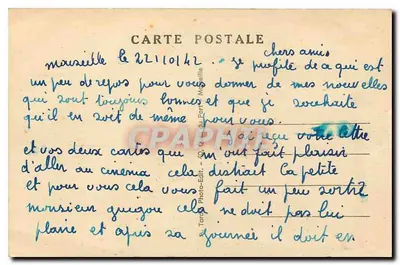 CARTE POSTALE
marseille le 22/10/42. chers amis
Je profite de ce qui est
un peu de repos pour vous donner de mes nouvelles
qui sont toujours bonnes et que je souhaite
qu'il en soit de même pour vous.
J'ai reçu votre lettre
et vos deux cartes qui m'ont fait plaisir
d'aller au cinema cela distrait la petite
et pour vous cela vous fait un peu sortir
monsieur guigou cela ne doit pas lui
plaire et après sa journée il doit en
CPARAMA